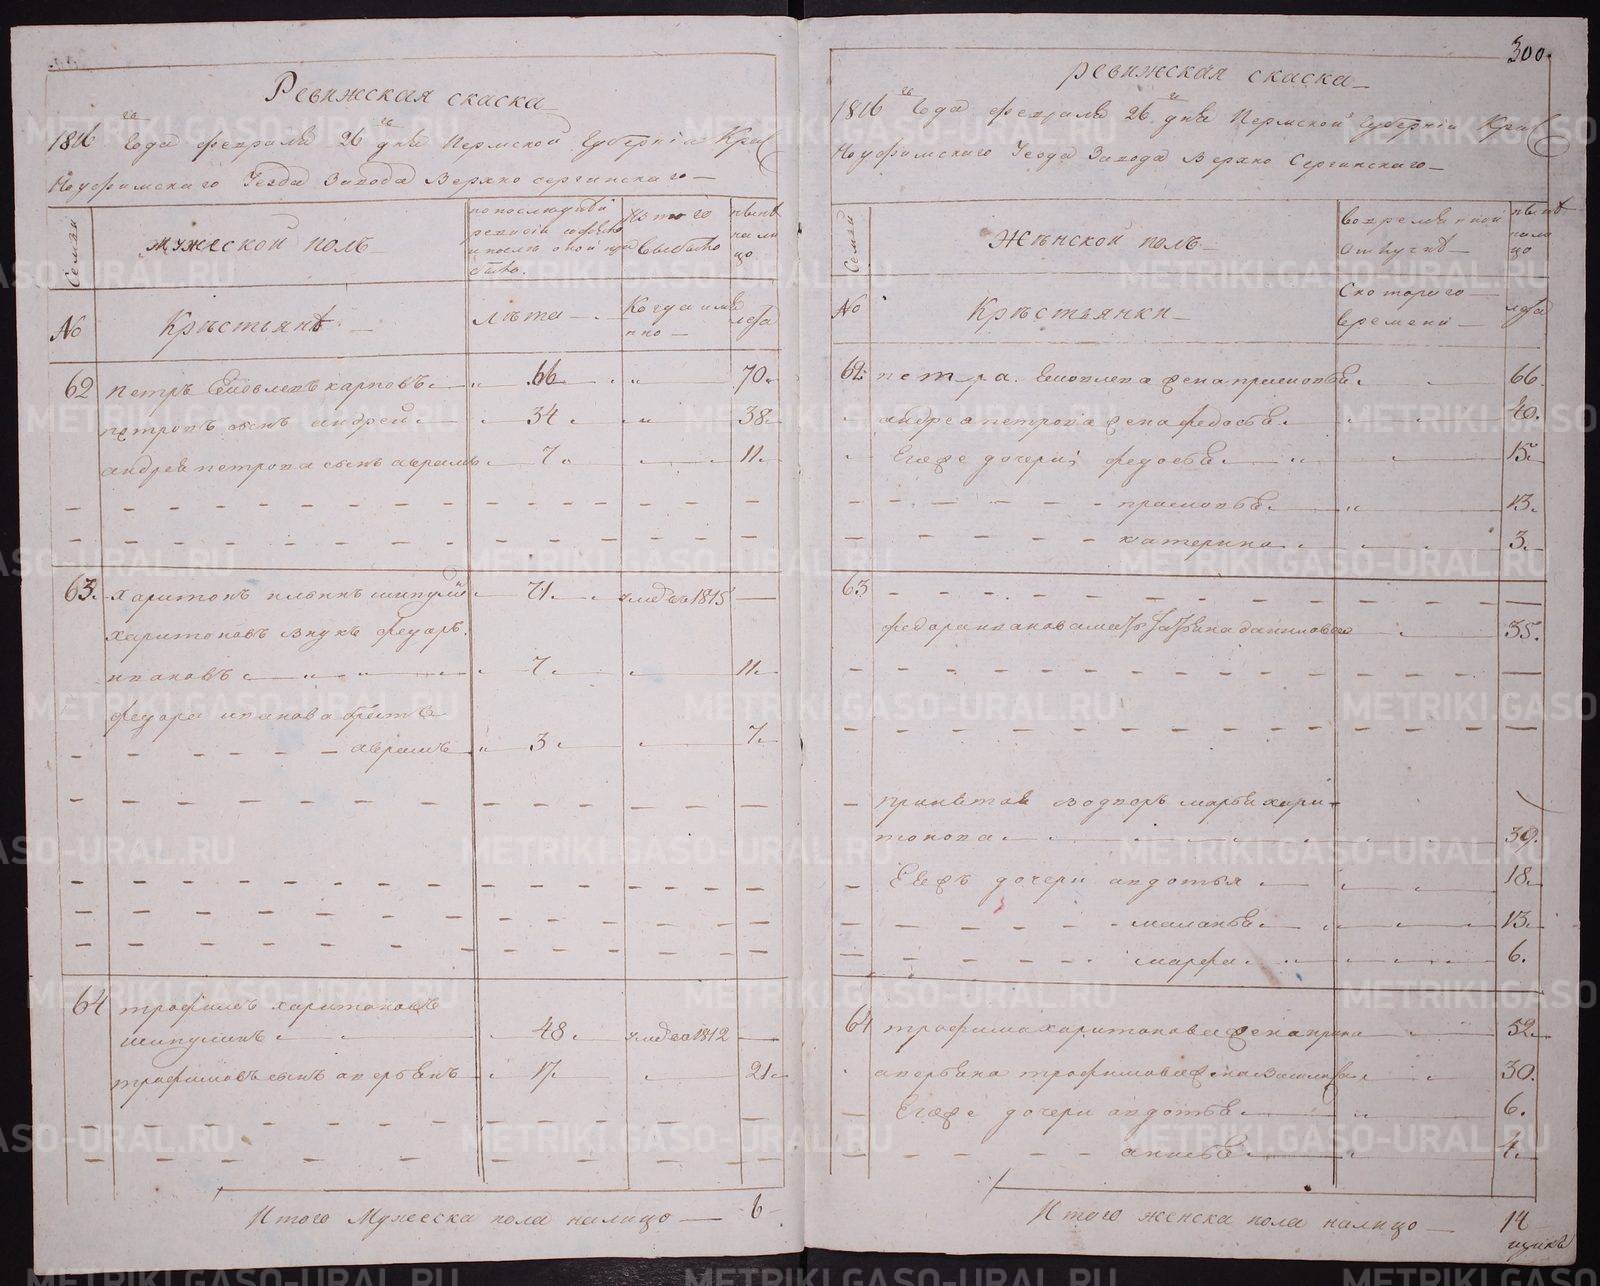 Ревижская скаска
1816 го Года февраля 26 го дня Пермской Губернiи Крас
ноуфимскаго Уезда Завода Верхно сергинскаго
Семьи
мужеской полъ
по последней ревизiи состояло и после оной прибыло.
Из того выбыло
ныне на лицо
№
Крѣстьянѣ
лѣта
Когда именно
лета
62 петръ Яковлевъ карповъ 66 70
петровъ сынъ андрей 34 38
андрея петрова сынъ аврамъ 7 11
63. харитонъ ильинъ шипулин 71 умре въ 1815
харитоновъ внукъ федоръ
ивановъ 7 11
федора иванова братья
аврамъ 3 7
64 трофимъ харитоновъ
шипулинъ 48 умре въ 1812
трофимовъ сынъ аверьянъ 17 21
Итого Мужеска пола налицо 6
300.
ревижская скаска
1816 го Года февраля 26 го дня Пермской Губернiи Крас
ноуфимскаго Уезда Завода Верхно Сергинскаго
Семьи
Жѣнской полъ
во временной отлучке
ныне нали цо
№
Крѣстьянки
С котораго времени
лета
62 петра Яковлева жена прасковья 66.
андрея петрова жена федосья 40.
Егоже дочери федосья 15.
прасковья 13.
катерина 3.
63
федора иванова мать татьяна данилова 35.
принетая водворъ марья хари
тонова 39.
Еяжъ дочери авдотья 18
маланья 13.
марфа 6.
64 трофима харитонова жена ирина 52
аверьяна трофимова жена василиса 30.
Егоже дочери авдотья 6.
анисья 4.
Итого женска пола налицо 14
METRIKI.GASO-URAL.RU